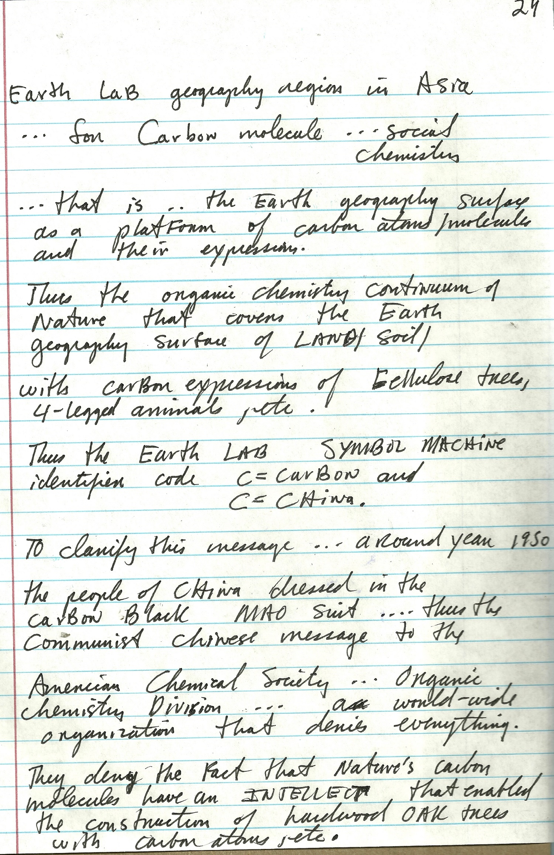 24
Earth LaB geography region in Asia
... for Carbon molecule ... social
chemistry
... that is .. the Earth geography surface
as a platform of carbon atoms/molecules
and their expressions.
Thus the organic chemistry continuum of
Nature that covers the Earth
geography surface of LAND/ Soil/
with carbon expressions of Cellulose trees,
4-legged animals, etc.
Thus the Earth LAB SYMBOL MACHINE
identifier code C = CarBon and
C = CHina.
To clarify this message ... around year 1950
the people of CHina dressed in the
CarBon Black MAO suit .... thus the
Communist Chinese message to the
American Chemical Society ... Organic
chemistry Division ... a world-wide
organization that denies everything.
They deny the Fact that Nature's carbon
molecules have an INTELLECT that enabled
the construction of hardwood OAK trees
with carbon atoms, etc.